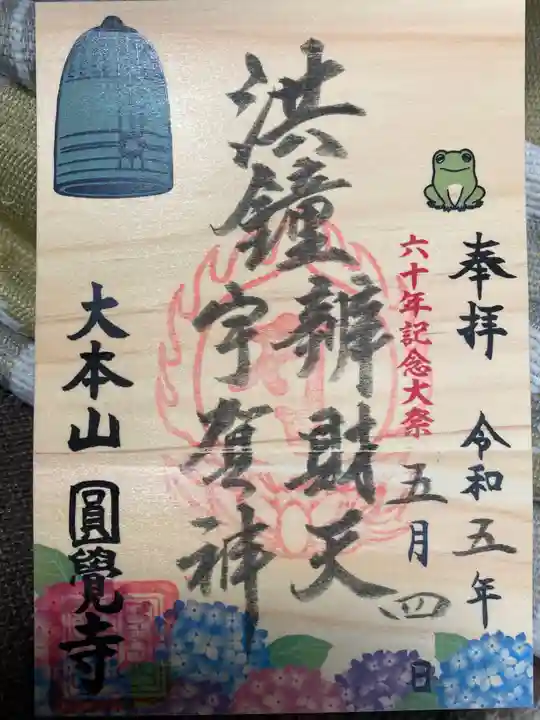 奉拝 令和五年
五月四日
六十年記念大祭
洪鐘
辨財天
宇賀神
大本山圓覺寺